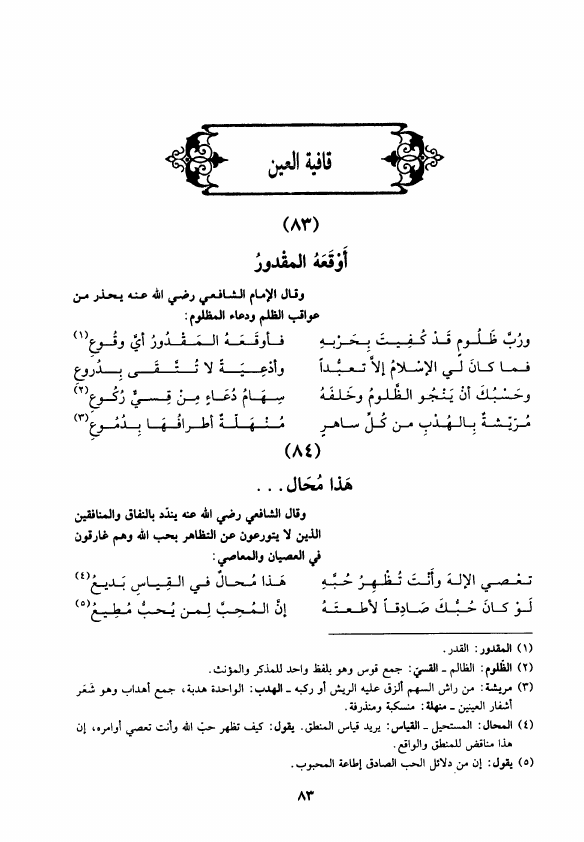 قافية العين
(٨٣)
أَوْقَعَهُ المقْدورُ
وقال الإمام الشافعي رضي الله عنه يحذر من
عواقب الظلم ودعاء المظلوم:
ورُبَّ ظَلُومٍ قَدْ كُفِيتَ بِحَرْبِهِ فأوقَعَهُ المَقْدُورُ أيَّ وقُوعِ(١)
فما كانَ لي الإسْلامُ إلاَّ تعبُّداً وأدْعِيَةً لا تُتَّقى بِدُروعِ
وحَسْبُكَ أنْ يَنْجُو الظَّلومُ وخَلفَهُ سِهَامُ دُعَاءٍ مِنْ قِسيِّ رُكُوعِ(٢)
مُرَيَّشةً بالهُدْبِ من كُلِّ ساهرٍ مُنْهَلَّةً أطرافُهَا بِدُمُوعِ(٣)
(٨٤)
هَذا مُحَال...
وقال الشافعي رضي الله عنه يندّد بالنفاق والمنافقين
الذين لا يتورعون عن التظاهر بحب الله وهم غارقون
في العصيان والمعاصي:
تعْصي الإلهَ وأنْتَ تُظْهِرُ حُبَّهُ هَذا مُحالٌ في القِياسِ بَديعُ(٤)
لَوْ كانَ حُبُّكَ صَادِقاً لأطعتَهُ إنَّ المُحِبَّ لِمن يُحبُّ مُطِيعُ(٥)
(١) المقدور: القدر.
(٢) الظَّلوم: الظالم ـ القسيّ: جمع قوس وهو بلفظ واحد للمذكر والمؤنث.
(٣) مريشة: من راش السهم ألزق عليه الريش أو ركبه ـ الهدب: الواحدة هدبة، جمع أهداب وهو شَعَر
أشفار العينين ـ منهلة: منسكبة ومتذرفة.
(٤) المحال: المستحيل ـ القياس: يريد قياس المنطق. يقول: كيف تظهر حبّ الله وأنت تعصي أوامره، إن
هذا مناقض للمنطق والواقع.
(٥) يقول: إن من دلائل الحب الصادق إطاعة المحبوب.
٨٣